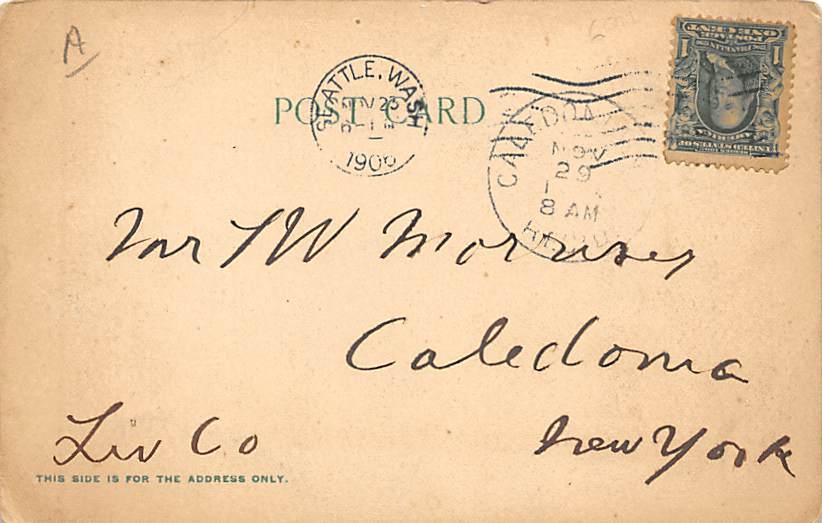 A
POST CARD
SEATTLE, WASH
NOV 23
1906
CALEDONIA
NOV
29
8 AM
ONE CENT
POSTAGE
1 1
UNITED STATES OF
AMERICA
Mr
Caledonia
Liv Co
New York
THIS SIDE IS FOR THE ADDRESS ONLY.